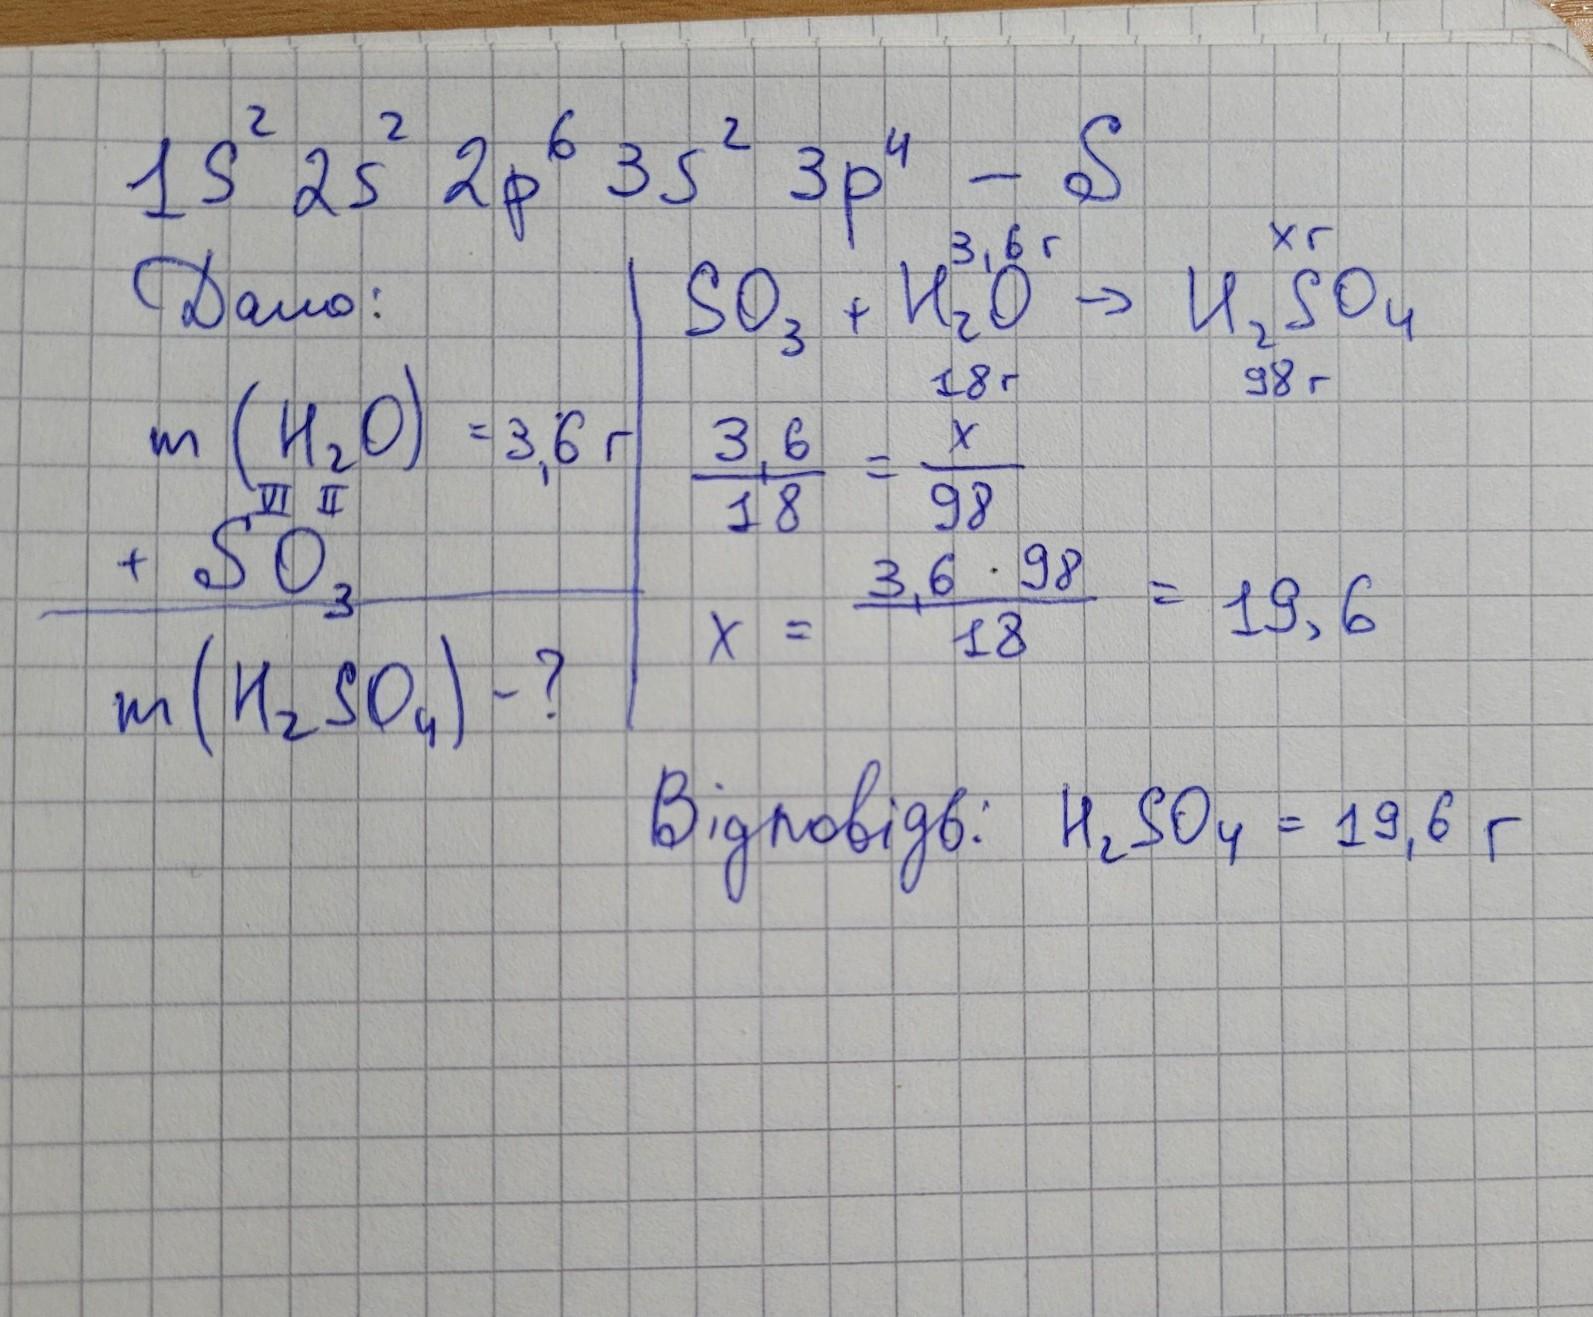 1s² 2s² 2p⁶ 3s² 3p⁴ - S
Дано:
m (H₂O) = 3,6 г
VI II
+ SO₃
m(H₂SO₄) - ?
3,6 г x г
SO₃ + H₂O → H₂SO₄
18 г 98 г
3,6/18 = x/98
x = 3,6 · 98/18 = 19,6
Відповідь: H₂SO₄ = 19,6 г